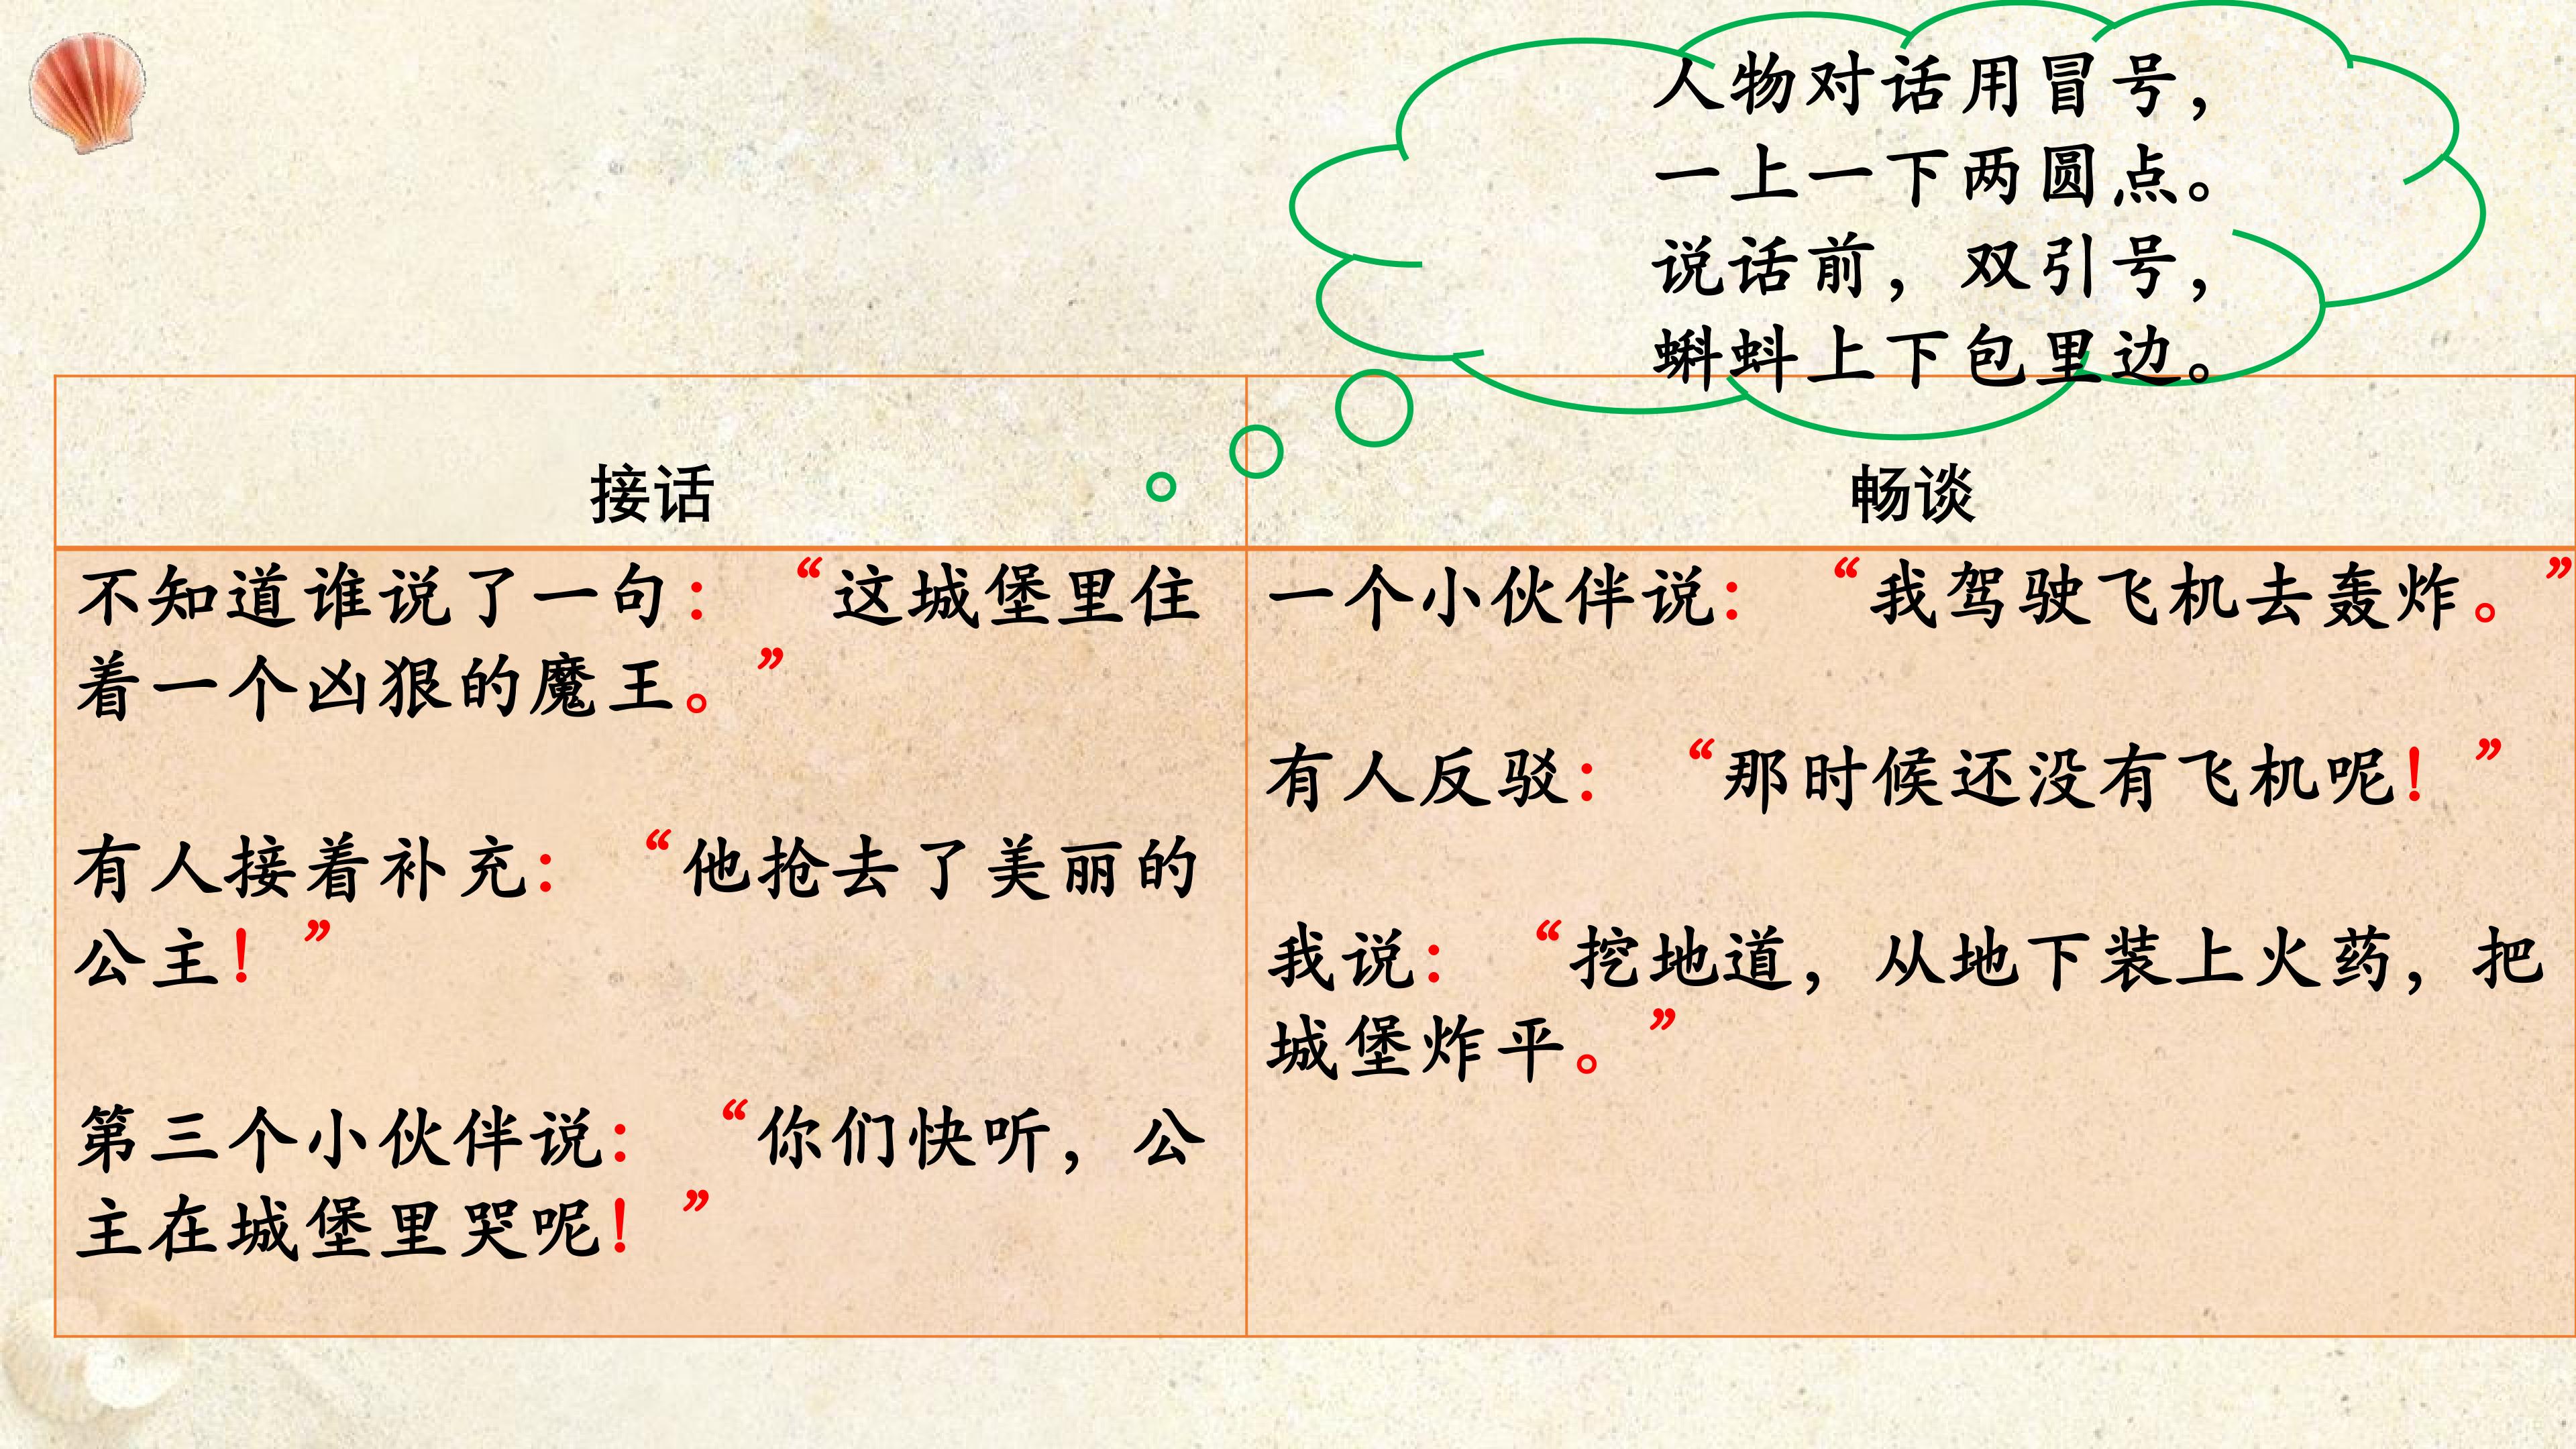 人物对话用冒号，
一上一下两圆点。
说话前，双引号，
蝌蚪上下包里边。
接话
畅谈
不知道谁说了一句：“这城堡里住
着一个凶狠的魔王。”
有人接着补充：“他抢去了美丽的
公主！”
第三个小伙伴说：“你们快听，公
主在城堡里哭呢！”
一个小伙伴说：“我驾驶飞机去轰炸。”
有人反驳：“那时候还没有飞机呢！”
我说：“挖地道，从地下装上火药，把
城堡炸平。”